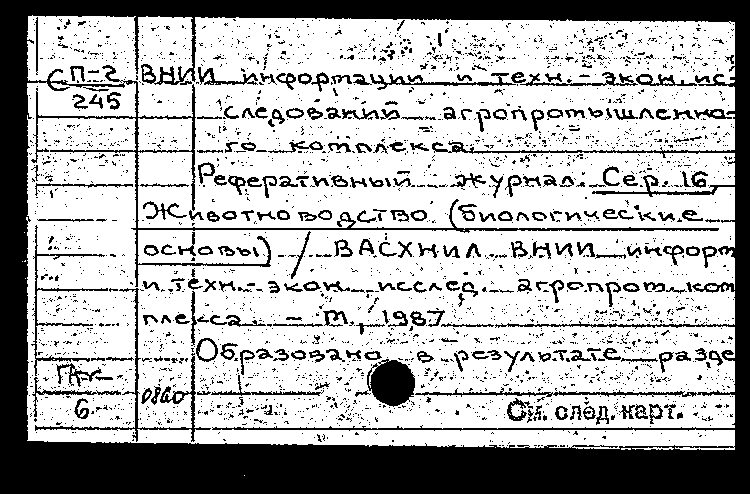 П-2 ВНИИ информации и техн.-экон. ис-
245
следований агропромышленно-
го комплекса.
Реферативный журнал. Сер. 16,
Животноводство (биологические
основы) / ВАСХНИЛ ВНИИ информ
и техн.-экон. исслед. агропром. ком
плекса. - М, 1987
Образовано в результате разде
6
См. след. карт.